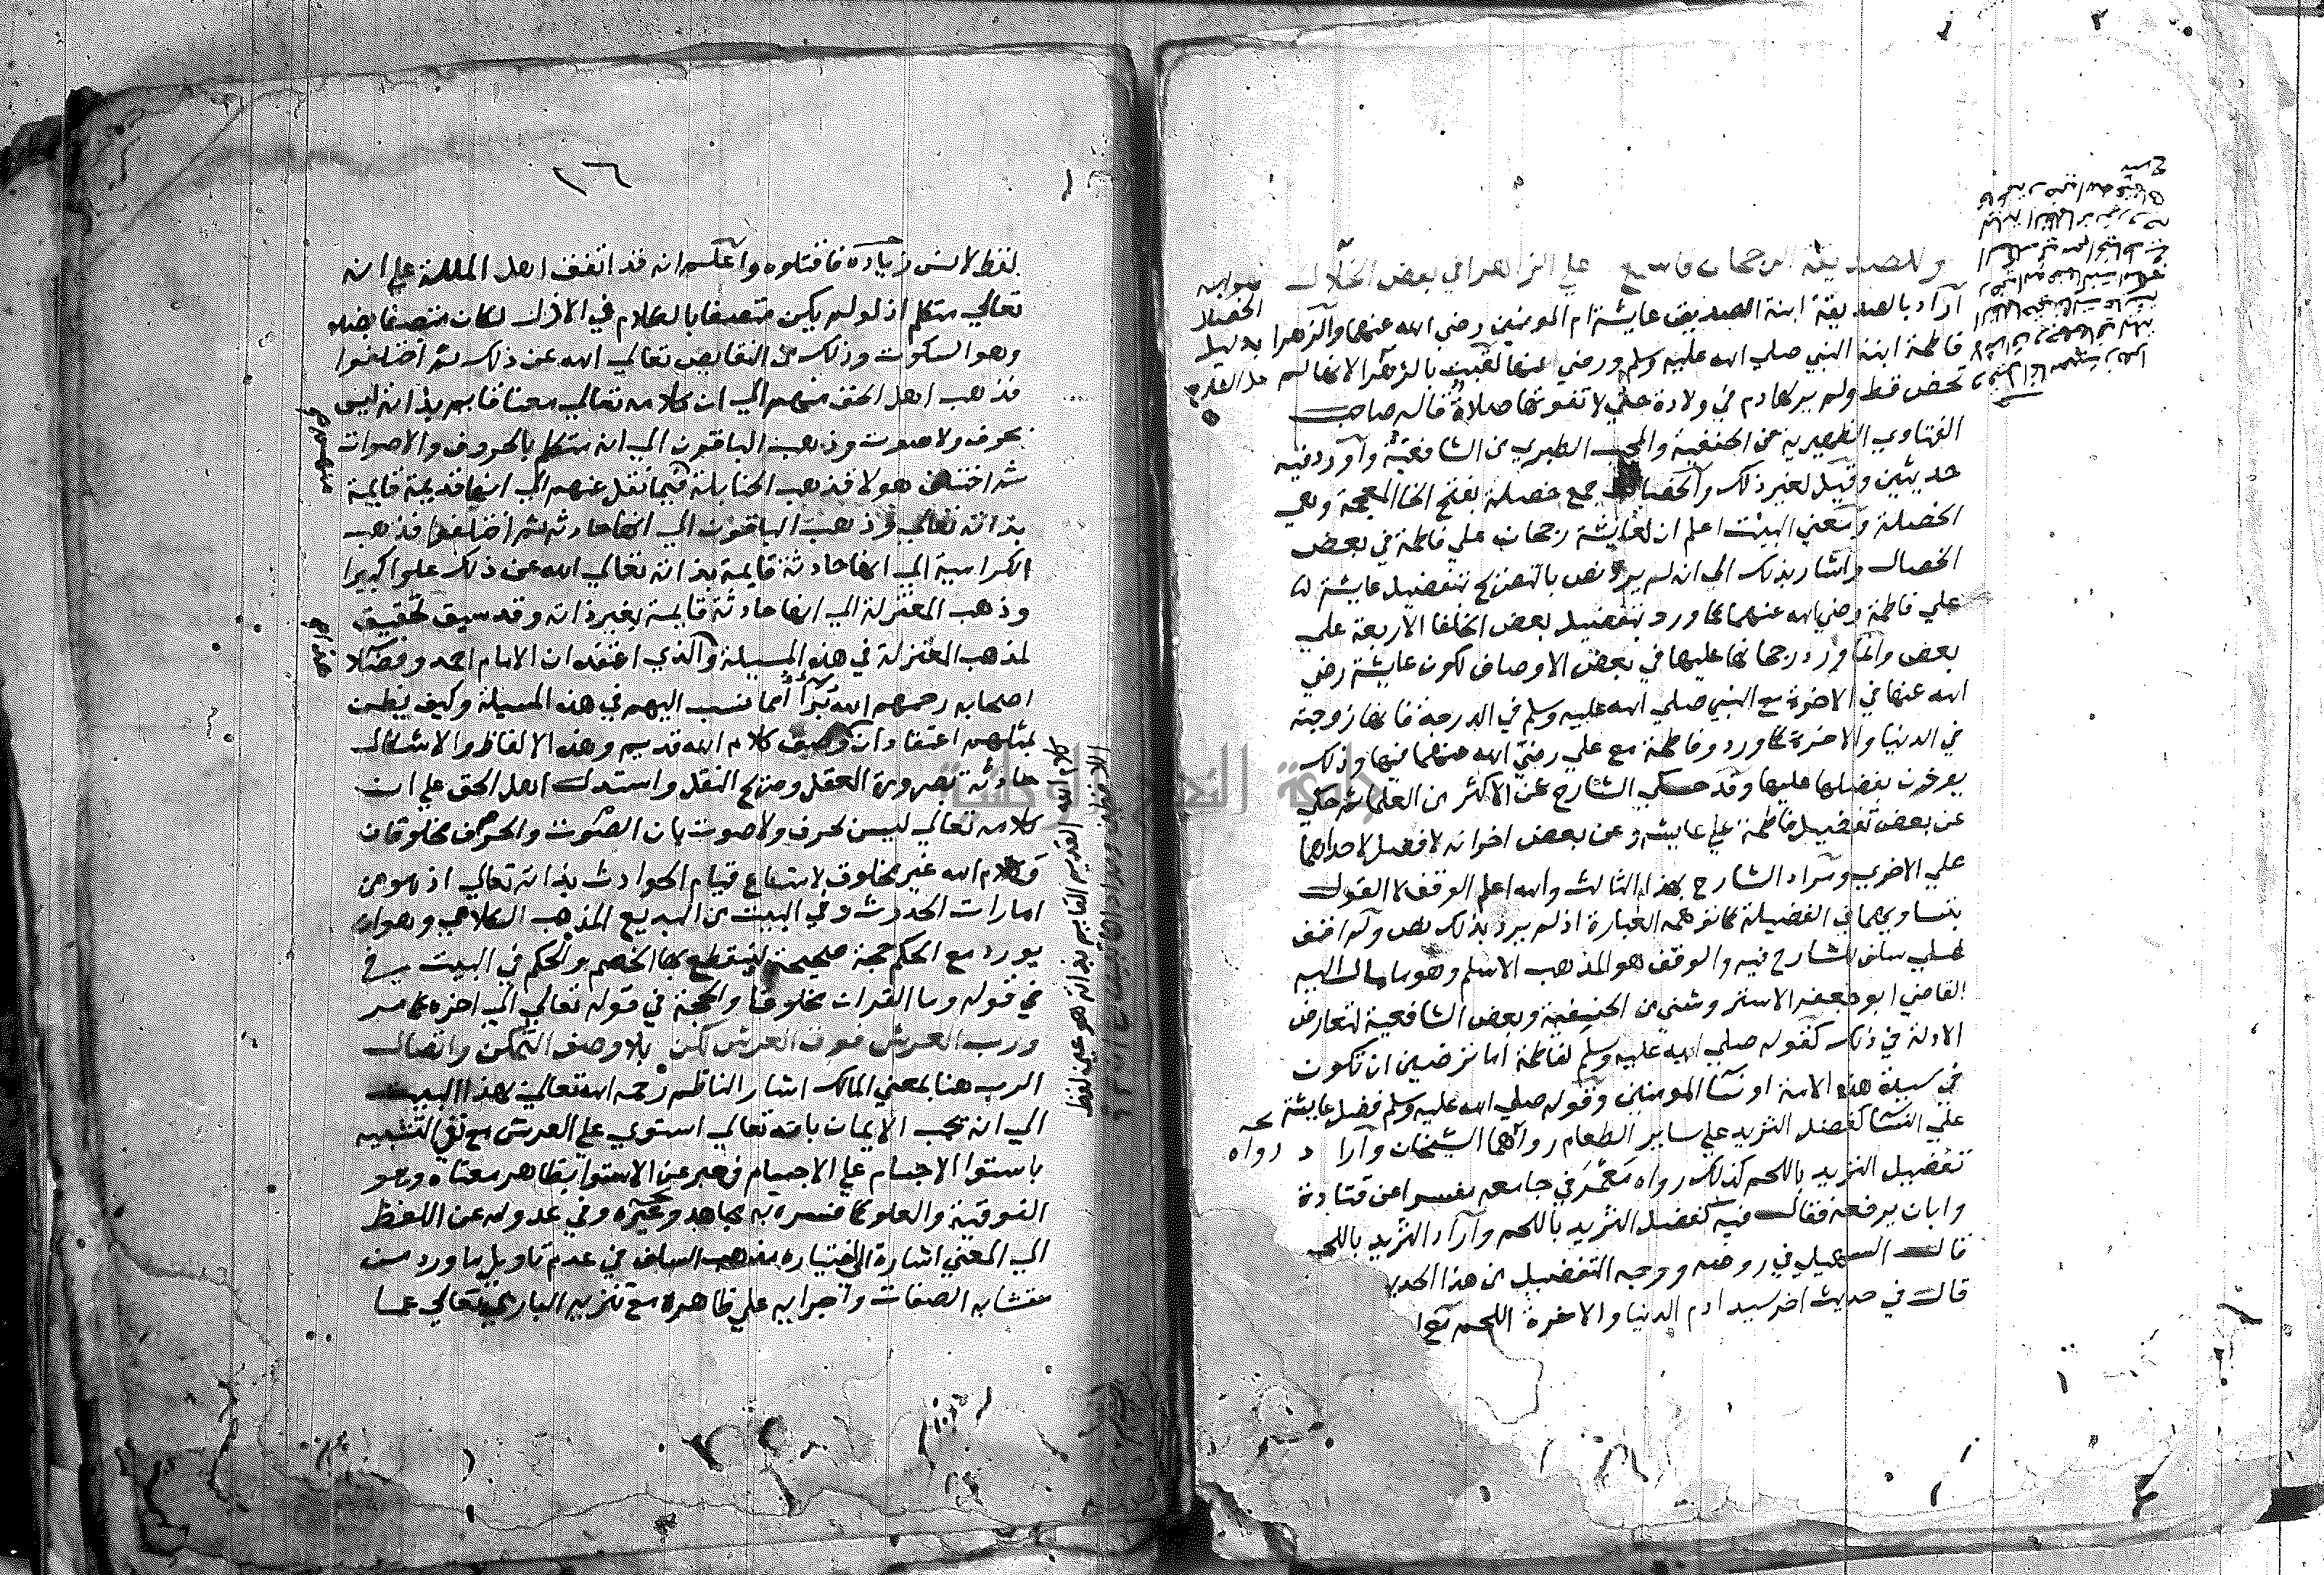 وللصديقة الرجحان فاسمع على الزهرا في بعض الخلال
اراد بالصديقة ابنة الصديق عايشة ام المومنين رضي الله عنهما والزهرا
فاطمة ابنة النبي صلي الله عليه وسلم ورضي عنها لقبت بالزهرا لانها لم
تحض قط ولم ير لها دم في ولادة حتي لا تفوتها صلاة قاله صاحب
الفتاوي الظهيرية من الحنفية والمحب الطبري من الشافعية واورد فيه
حديثين وقيل لغير ذلك والخصال جمع خصلة بفتح الخا المعجمة وهي
الخصلة ومعني البيت اعلم ان لعايشة رجحان علي فاطمة في بعض
الخصال واشار بذلك الي انه لم يرد نص بالتصريح بتفضيل عايشة
علي فاطمة رضي الله عنهما كما ورد بتفضيل بعض الخلفا الاربعة علي
بعض وانما ورد رجحانها عليها في بعض الاوصاف لكون عايشة رضي
الله عنها في الاخرة مع النبي صلي الله عليه وسلم في الدرجة فانها زوجته
في الدنيا والاخرة كما ورد وفاطمة مع علي رضي الله عنهما فيها وذلك
بعض بفضلها عليها وقد حكي الشارح عن الاكثر من العلما ثم حكي
عن بعض تفضيل فاطمة علي عايشه وعن بعض اخر انه لا فضل لاحداهما
علي الاخري ومراد الشارح بهذا الثالث والله اعلم الوقف لا القول
بتساويهما في الفضيلة كما توهمه العبارة اذ لم يرد بذلك نص ولم اقف
علي سلف للشارح فيه والوقف هو المذهب الاسلم وهو ما مال اليه
القاضي ابو جعفر الاستروشني من الحنفية وبعض الشافعية لتعارض
الادلة في ذلك كقوله صلي الله عليه وسلم لفاطمة اما ترضين ان تكون
في سيدة هذه الامة او نسا المومنين وقوله صلي الله عليه وسلم فضل عايشة
علي النسا كفضل الثريد علي ساير الطعام رواهما الشيخان واراد
تفضيل الثريد باللحم كذلك رواه معمر في جامعه مفسرا عن قتادة
وابان يرفعه فقال فيه كفضل الثريد باللحم واراد الثريد باللحم
قال السهيلي في روضه ووجه التفضيل من هذا الحديث
قال في حديث اخر سيد ادم الدنيا والاخرة اللحم مع
١٦
لفظ لانس زيادة فاقتلوه واعلم انه قد اتفق اهل الملة علي انه
تعالي متكلم اذ لو لم يكن متصفا بالكلام في الازل لكان متصفا بضده
وهو السكوت وذلك من النقايص تعالي الله عن ذلك ثم اختلفوا
فذهب اهل الحق منهم الي ان كلامه تعالي معنا قايم بذاته ليس
بحرف ولا صوت وذهب الباقون الي انه متكلم بالحروف والاصوات
ثم اختلف هولا فذهب الحنابلة فيما نقل عنهم الي انها قديمة قايمة
بذاته تعالي وذهب الباقون الي انها حادثة ثم اختلفوا فذهب
الكرامية الي انها حادثة قايمة بذاته تعالي الله عن ذلك علوا كبيرا
وذهب المعتزلة الي انها حادثة قايمة بغير ذاته وقد سبق تحقيق
لمذهب المعتزلة في هذه المسيلة والذي اعتقده ان الامام احمد وفضلا
اصحابه رحمهم الله تبرأ مما نسب اليهم في هذه المسيلة وكيف يظن
بمثلهم اعتقاد ان كلام الله قديم وهذه الالفاظ والاشكال
حادثة بضرورة العقل وصريح النقل واستدل اهل الحق علي ان
كلامه تعالي ليس بحرف ولا صوت بان الصوت والحرف مخلوقان
وكلام الله غير مخلوق لامتناع قيام الحوادث بذاته تعالي اذ هو من
امارات الحدوث وفي البيت من البديع المذهب الكلامي وهو ان
يورد مع الحكم حجة صحيحة لينقطع بها الخصم والحكم في البيت
في قوله وما القران مخلوقا والحجة في قوله تعالي الي اخره كما مر
ورب العرش فوق العرش لكن بلا وصف التمكن واتصال
الرب هنا بمعني المالك اشار الناظم رحمه الله تعالي بهذا البيت
الي انه يجب الايمان بانه تعالي استوي علي العرش مع نفي التشبيه
باستوا الاجسام علي الاجسام فعبر عن الاستوا بظاهر معناه وهو
الفوقية والعلو كما فسره به مجاهد وغيره وفي عدوله عن اللفظ
الي المعني اشارة الي اختياره مذهب السلف في عدم تاويل ما ورد من
متشابه الصفات واجرايه علي ظاهره مع تنزيه الباري تعالي عما